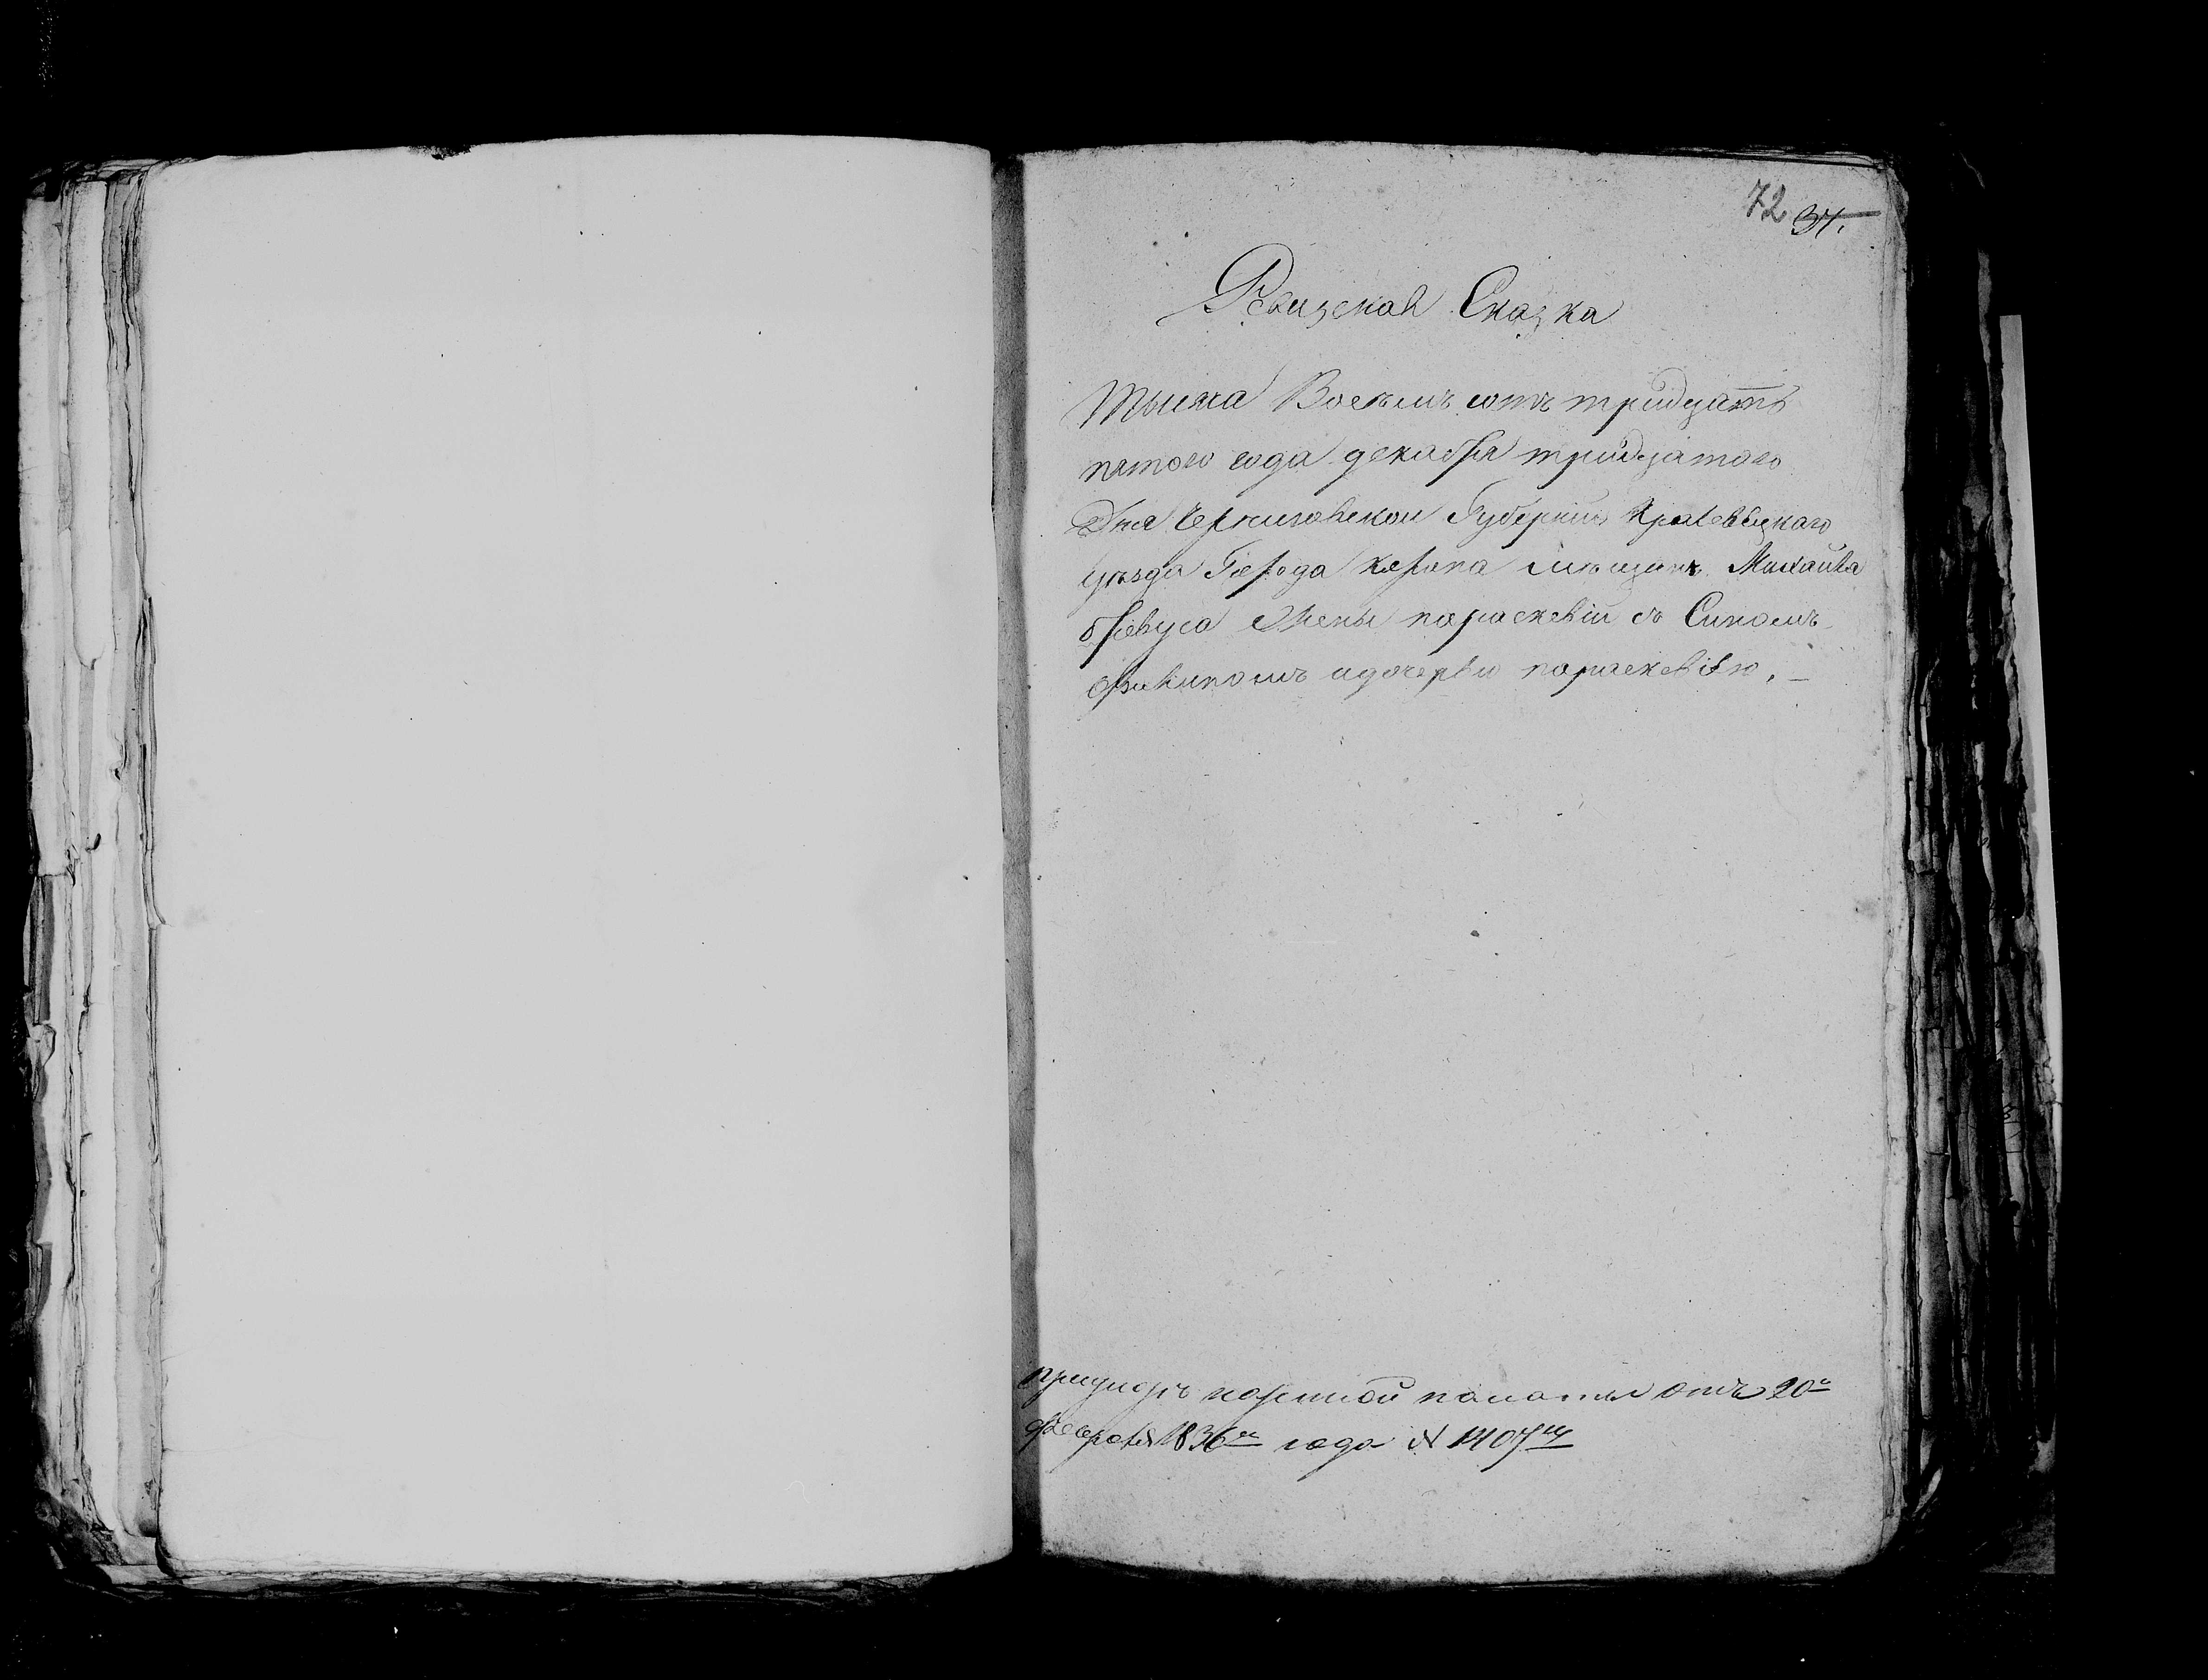 72 37.
Ревизская Сказка
Тысяча Восемь сотъ тридцать
пятого года декабря тридцатого
Дня Черниговской Губерніи Кролевецкаго
уезда Города коропа мещан Михайла
бревуса Жены параскевіи съ Синомъ
Филипомъ идочерью параскевією. —
казенной палаты отъ 20
февраля 1836 года N 1407